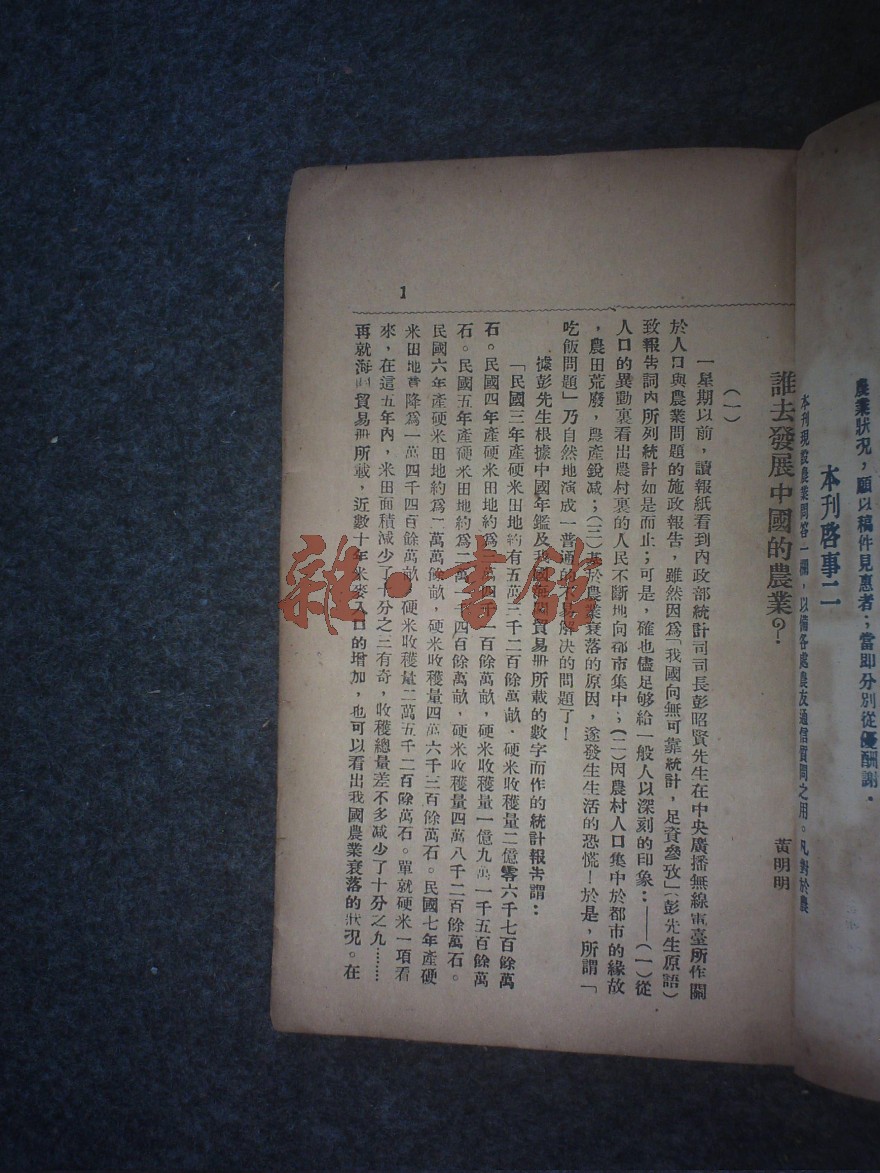 農業狀況，願以稿件見惠者；當卽分別從優酬謝．
本刊啓事二
本刊現設農業問答一欄，以備各處農友通信質問之用。凡對於農
誰去發展中國的農業？
黃明明
（一）
一星期以前，讀報紙看到內政部統計司司長彭昭賢先生在中央廣播無線電臺所作關
於人口與農業問題的施政報告，雖然因爲「我國向無可靠統計，足資參攷」（彭先生原語）
致報告詞內所列統計如是而止；可是，確也儘足够給一般人以深刻的印象：——（一）從
人口的異動裏看出農村裏的人民不斷地向都市集中；（二）因農村人口集中於都市的緣故
，農田荒廢，農產銳減；（三）基於農業衰落的原因，遂發生生活的恐慌！於是，所謂「
吃飯問題」乃自然地演成一普通的不易解決的問題了！
據彭先生根據中國年鑑及我國海關貿易册所載的數字而作的統計報告謂：
「民國三年產硬米田地約有五萬二千二百餘萬畝．硬米收穫量二億零六千七百餘萬
石。民國四年產硬米田地約爲二萬四千一百餘萬畝，硬米收穫量一億九萬一千五百餘萬
石。民國五年產硬米田地約爲二萬二千四百餘萬畝，硬米收穫量四萬八千二百餘萬石。
民國六年產硬米田地約爲二萬萬餘畝，硬米收穫量四萬六千三百餘萬石。民國七年產硬
米田地竟降爲一萬四千四百餘萬畝，硬米收穫量二萬五千二百餘萬石。單就硬米一項看
來，在這五年內，米田面積減少了十分之三有奇，收穫總量差不多減少了十分之九……
再就海關貿易册所載，近數十年米麥入口的增加，也可以看出我國農業衰落的狀況。在
1
雜·書館